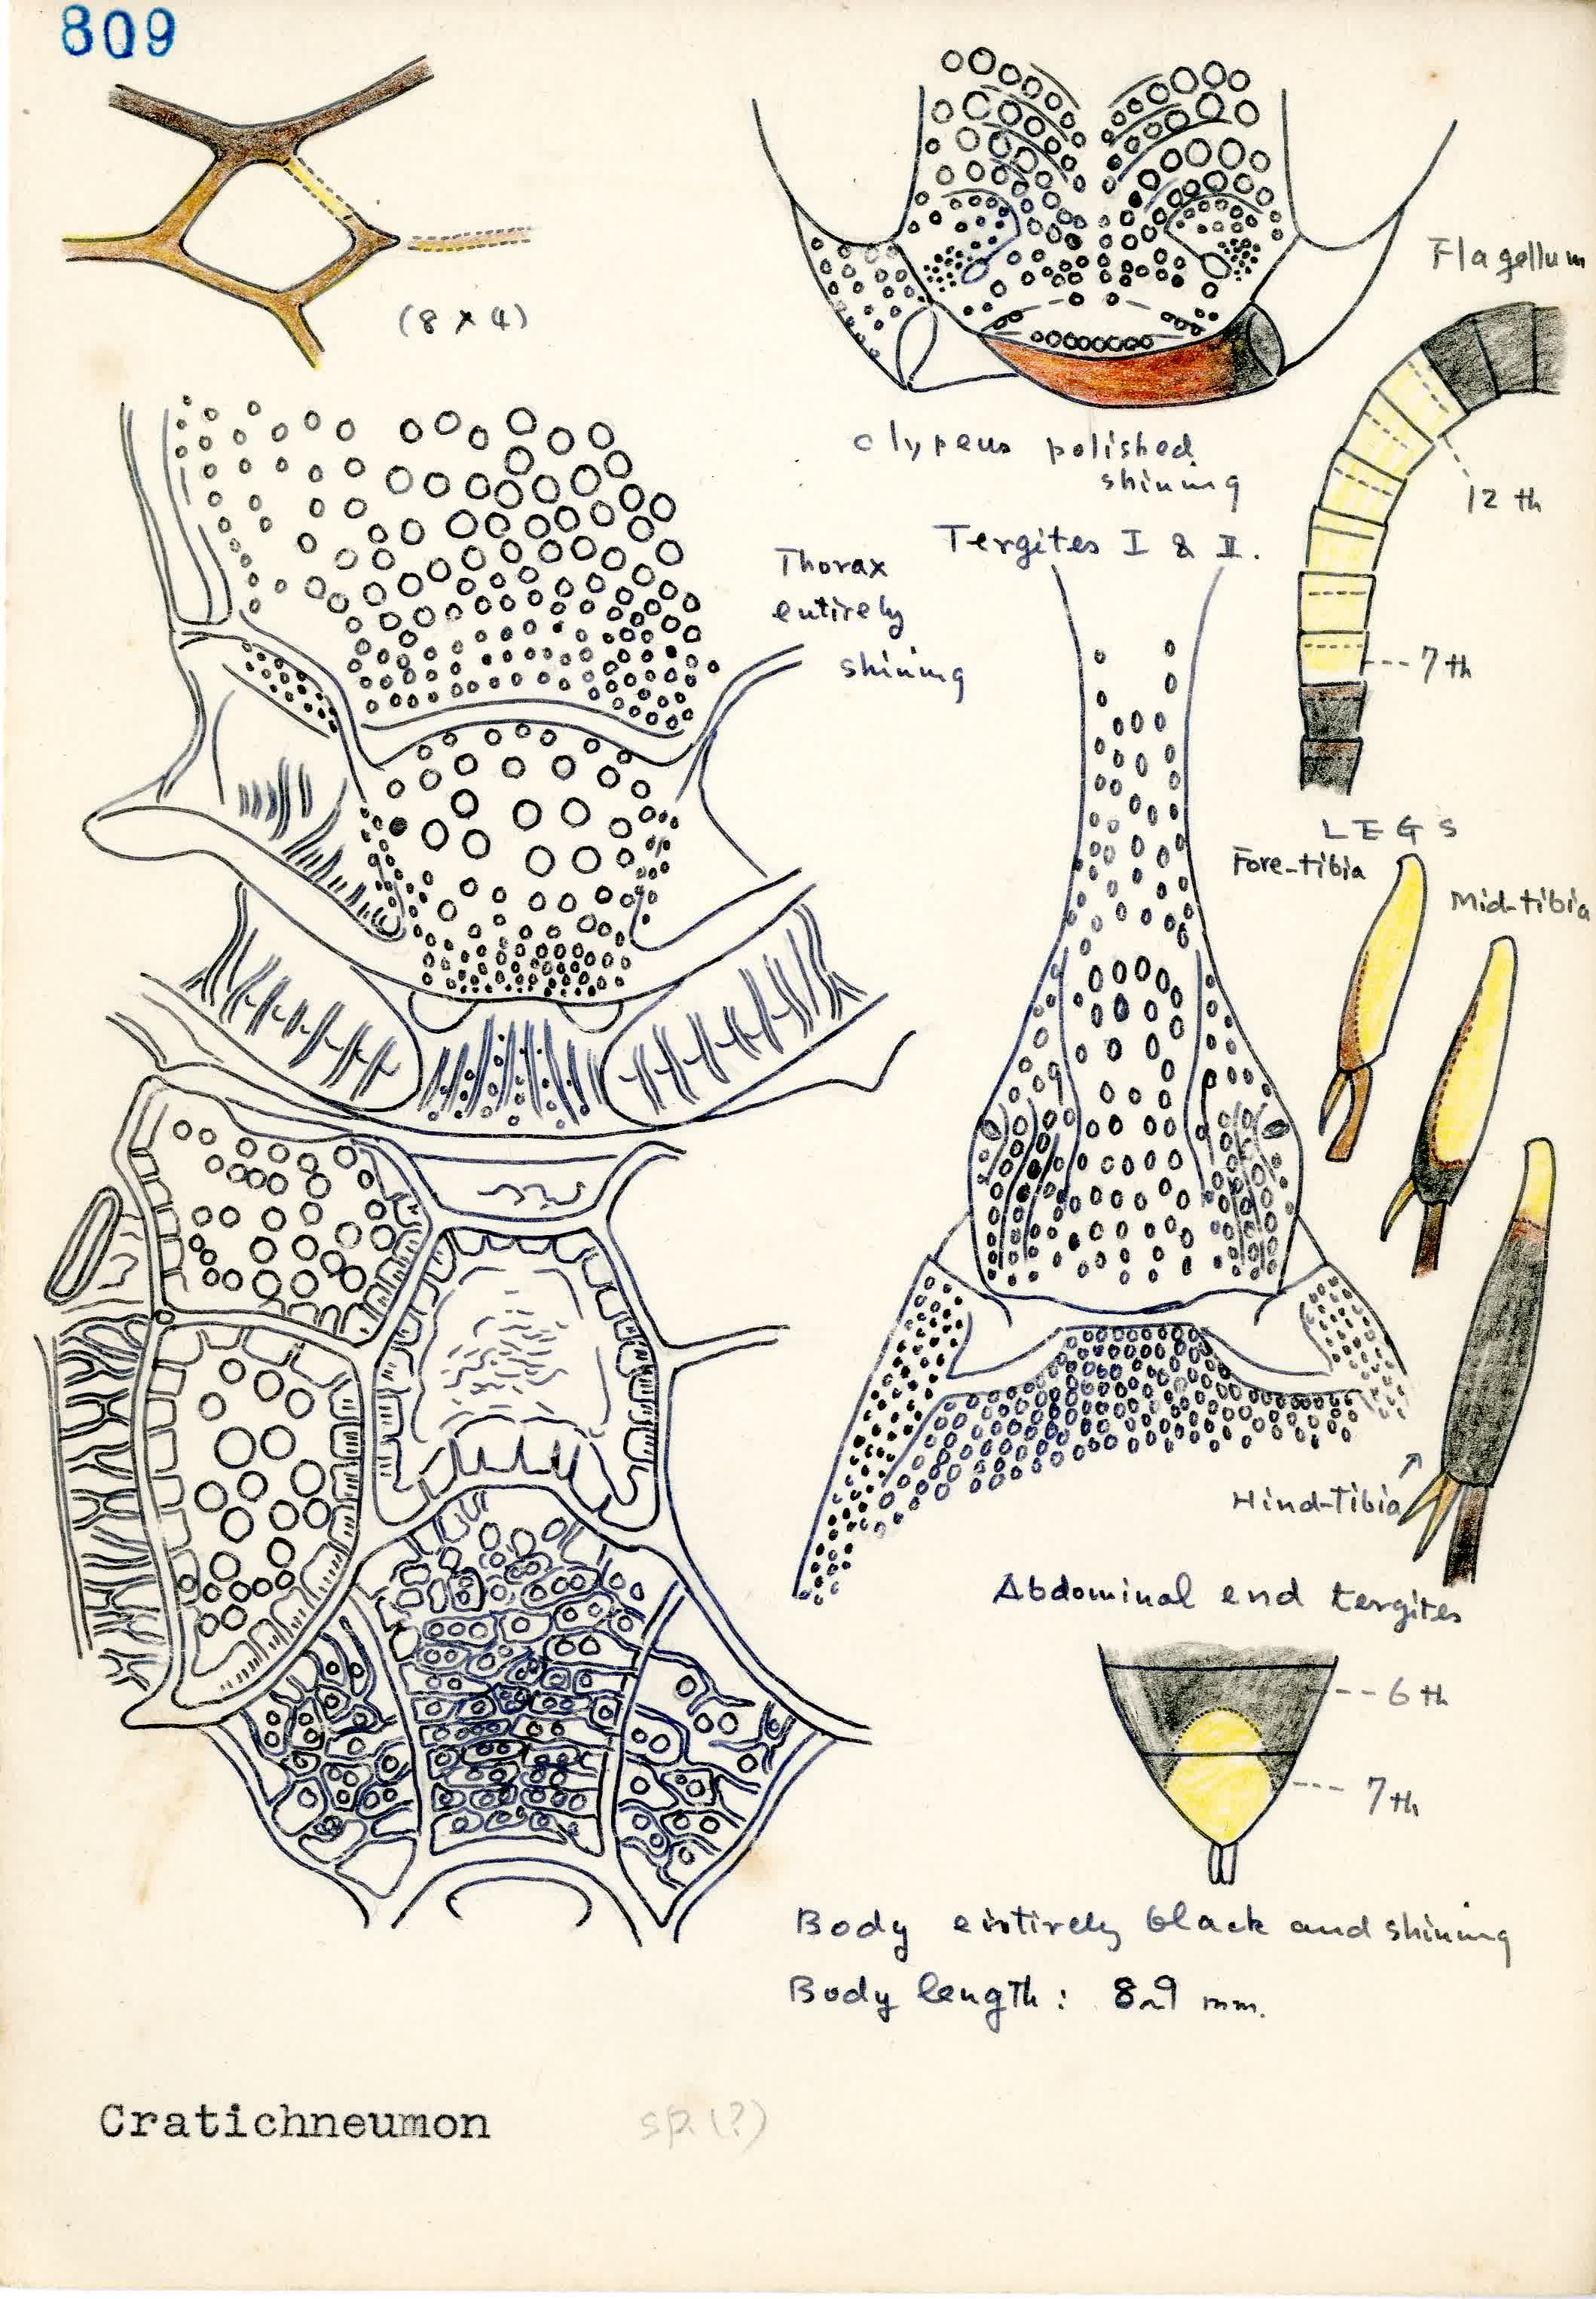 809
(8 x 4)
Flagellum
clypeus polished
shining
12 th
Tergites I & II.
Thorax
entirely
shining
7 th
LEGS
Fore-tibia
Mid-tibia
Hind-Tibia
Abdominal end tergites
6 th
7 th
Body entirely black and shining
Body length: 8~9 mm.
Cratichneumon sp.(?)